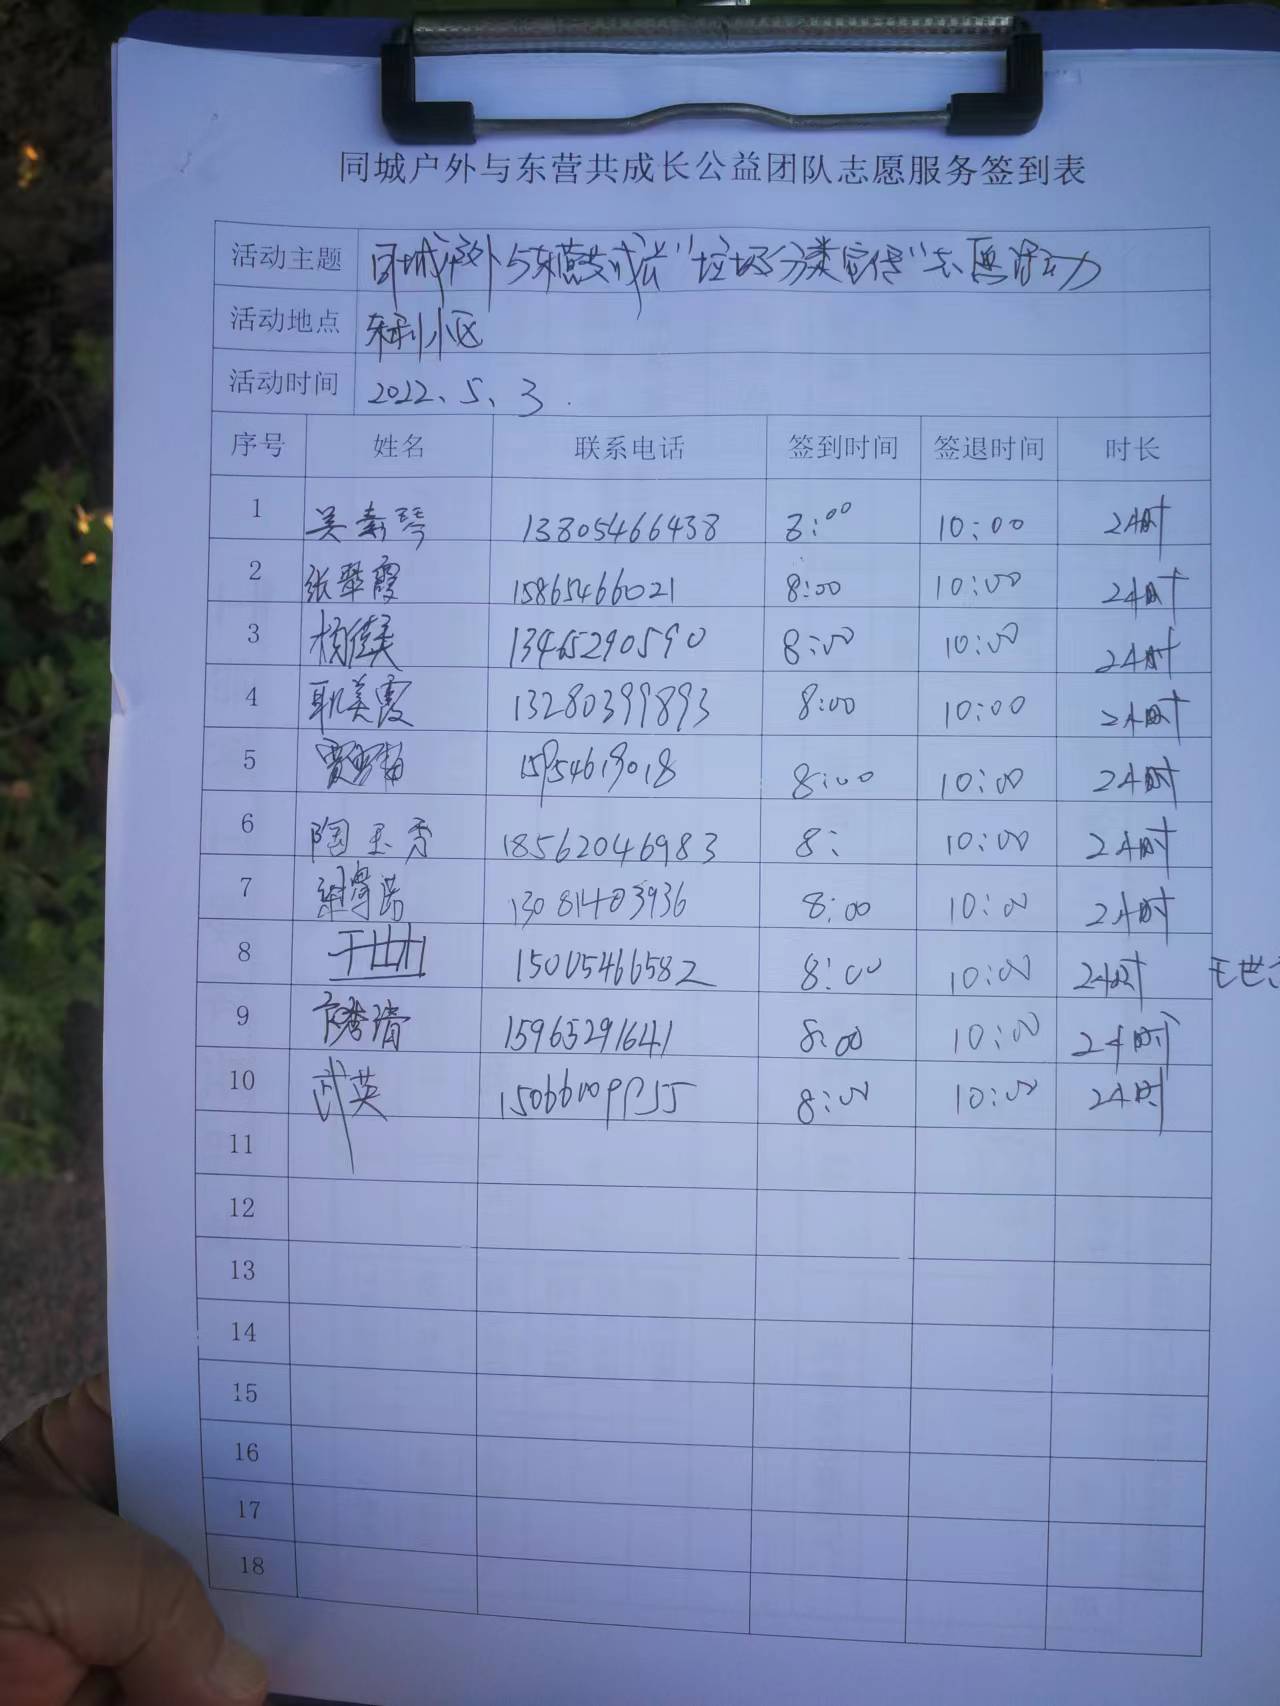 同城户外与东营共成长公益团队志愿服务签到表
活动主题 同城户外与东营共成长"垃圾分类宣传"志愿活动
活动地点 小区
活动时间 2022、5、3.
序号 姓名 联系电话 签到时间 签退时间 时长
1 吴素琴 13805466438 8:00 10:00 2小时
2 张翠霞 15865466021 8:00 10:00 2小时
3 13465290590 8:00 10:00 2小时
4 耿美霞 13280399893 8:00 10:00 2小时
5 15954619018 8:00 10:00 2小时
6 陶玉秀 18562046983 8: 10:00 2小时
7 8:00 10:00 2小时
8 15005466582 8:00 10:00 2小时 王世
9 15965291641 8:00 10:00 2小时
10 武英 8:00 10:00 2小时
11
12
13
14
15
16
17
18